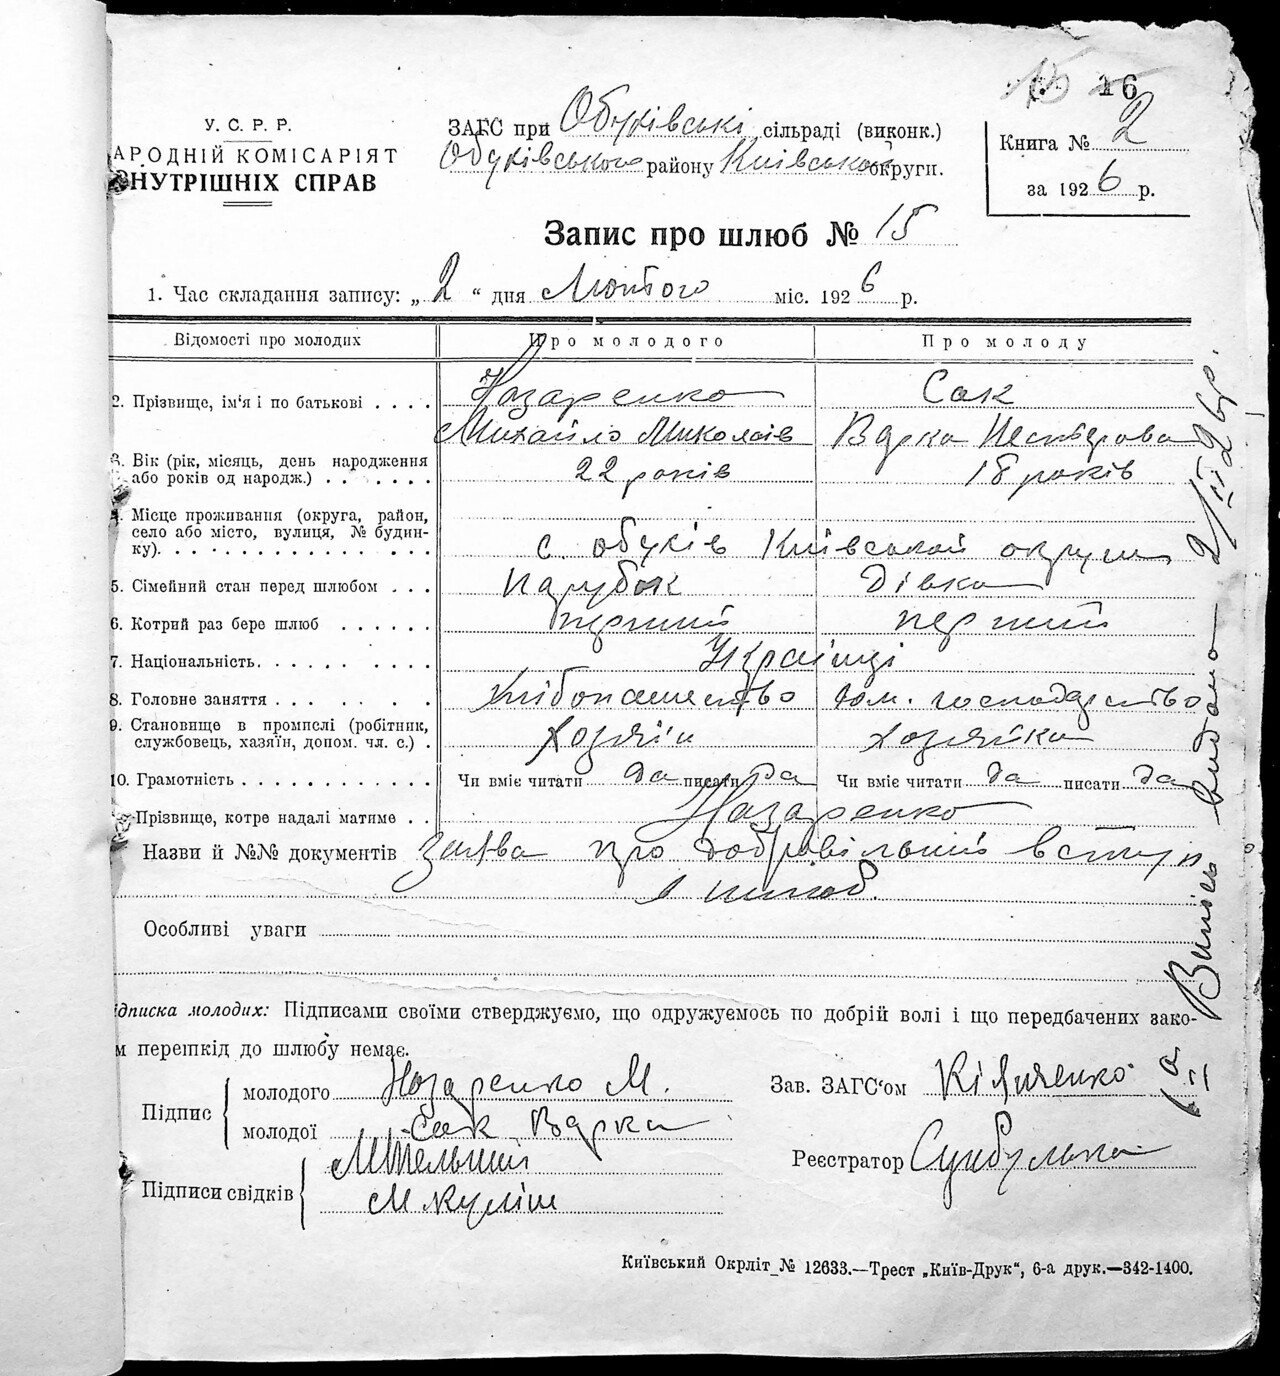 16
У. С. Р. Р.
АРОДНІЙ КОМІСАРІЯТ
ВНУТРІШНІХ СПРАВ
ЗАГС при Обухівські сільраді (виконк.)
Обухівського району Київської округи.
Книга № 2
за 1926 р.
Запис про шлюб № 15
1. Час складання запису: „2“ дня Лютого міс. 1926 р.
Відомості про молодих Про молодого Про молоду
2. Прізвище, ім'я і по батькові . . . . Назаренко Сак
Михайло Миколаїв Варка Нестерова
3. Вік (рік, місяць, день народження
або років од народж.) . . . . . . 22 років 18 років
4. Місце проживання (округа, район,
село або місто, вулиця, № будин-
ку). . . . . . . . . . . . . . . с. Обухів Київської округи
5. Сімейний стан перед шлюбом . . . Парубок Дівка
6. Котрий раз бере шлюб . . . . . . перший перший
7. Національність. . . . . . . . . . Українці
8. Головне заняття . . . . . . . . Хлібопашество дом. господарство
9. Становище в промислі (робітник,
службовець, хазяїн, допом. чл. с.) . Хозяїн Хозяйка
10. Грамотність . . . . . . . . . . . Чи вміє читати да писати да Чи вміє читати да писати да
Прізвище, котре надалі матиме . . Назаренко
Назви й №№ документів Заява про добровільний вступ
в шлюб.
Особливі уваги
ідписка молодих: Підписами своїми стверджуємо, що одружуємось по добрій волі і що передбачених зако-
м перешкід до шлюбу немає.
Підпис
молодого Назаренко М.
молодої Сак Варка
Підписи свідків
М Куліш
Зав. ЗАГС'ом
Реєстратор
Київський Окрліт № 12633.—Трест „Київ-Друк“, 6-а друк.—342-1400.
Випись видано 2/II 26 р.